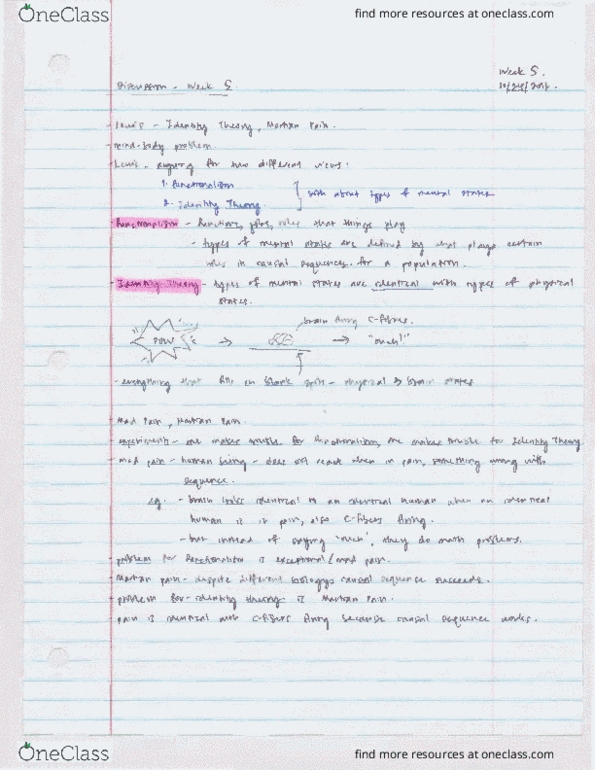 OneClass
find more resources at oneclass.com
Week 5.
Discussion - Week 5
Lewis - Identity Theory, Martian Pain.
mind-body problem.
Lewis - arguing for two different views:
1. functionalism
2. Identity Theory.
both about types of mental states
functionalism - functions, jobs, roles that things play
- types of mental states are defined by what plays certain
roles in causal sequences. for a population.
Identity Theory - types of mental states are identical with types of physical
states.
POW
brain firing C-fibres.
"ouch!"
- everything that fills in blank spot - physical brain states
Mad Pain, Martian Pain.
experiments - one makes trouble for functionalism, one makes trouble for Identity Theory
mad pain - human being - does not react when in pain, something wrong with
sequence.
eg. - brain looks identical to an identical human when an identical
human is in pain, also C-fibers firing.
- but instead of saying "ouch", they do math problems.
problem for functionalism is exceptional/mad pain.
martian pain - despite different biology causal sequence succeeds.
problem for identity theory is Martian Pain.
pain is identical with C-fibers firing because causal sequence works.
OneClass
find more resources at oneclass.com